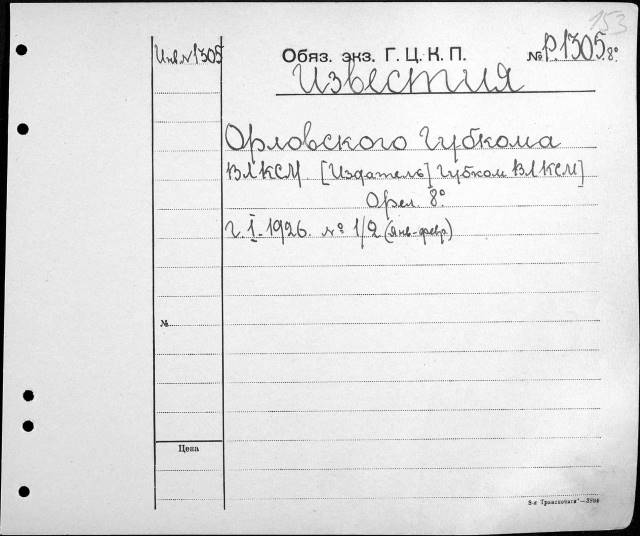 153
Инв. №1305
Обяз. экз. Г. Ц. К. П. № Р.1305. 8°
Известия
Орловского Губкома
ВЛКСМ. [Издатель] Губком ВЛКСМ]
Орел. 8°.
Г. I. 1926. № 1/2 (янв.-февр)
№
Цена